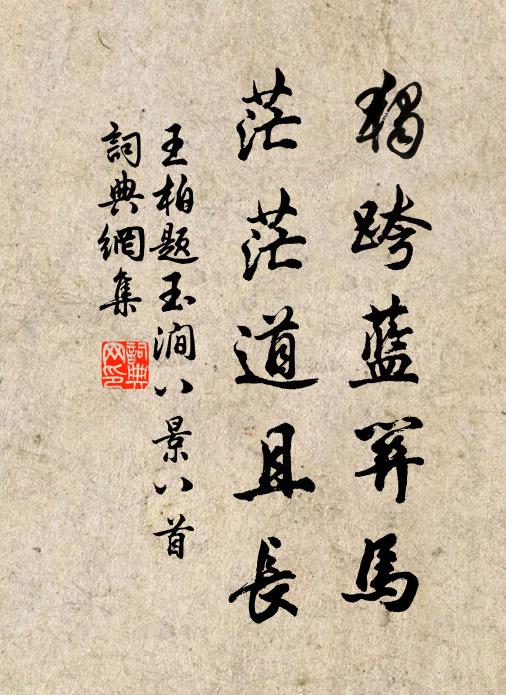 獨跨藍關馬
茫茫道且長
王柏題玉澗八景八首
詞典網集
詞典
网印